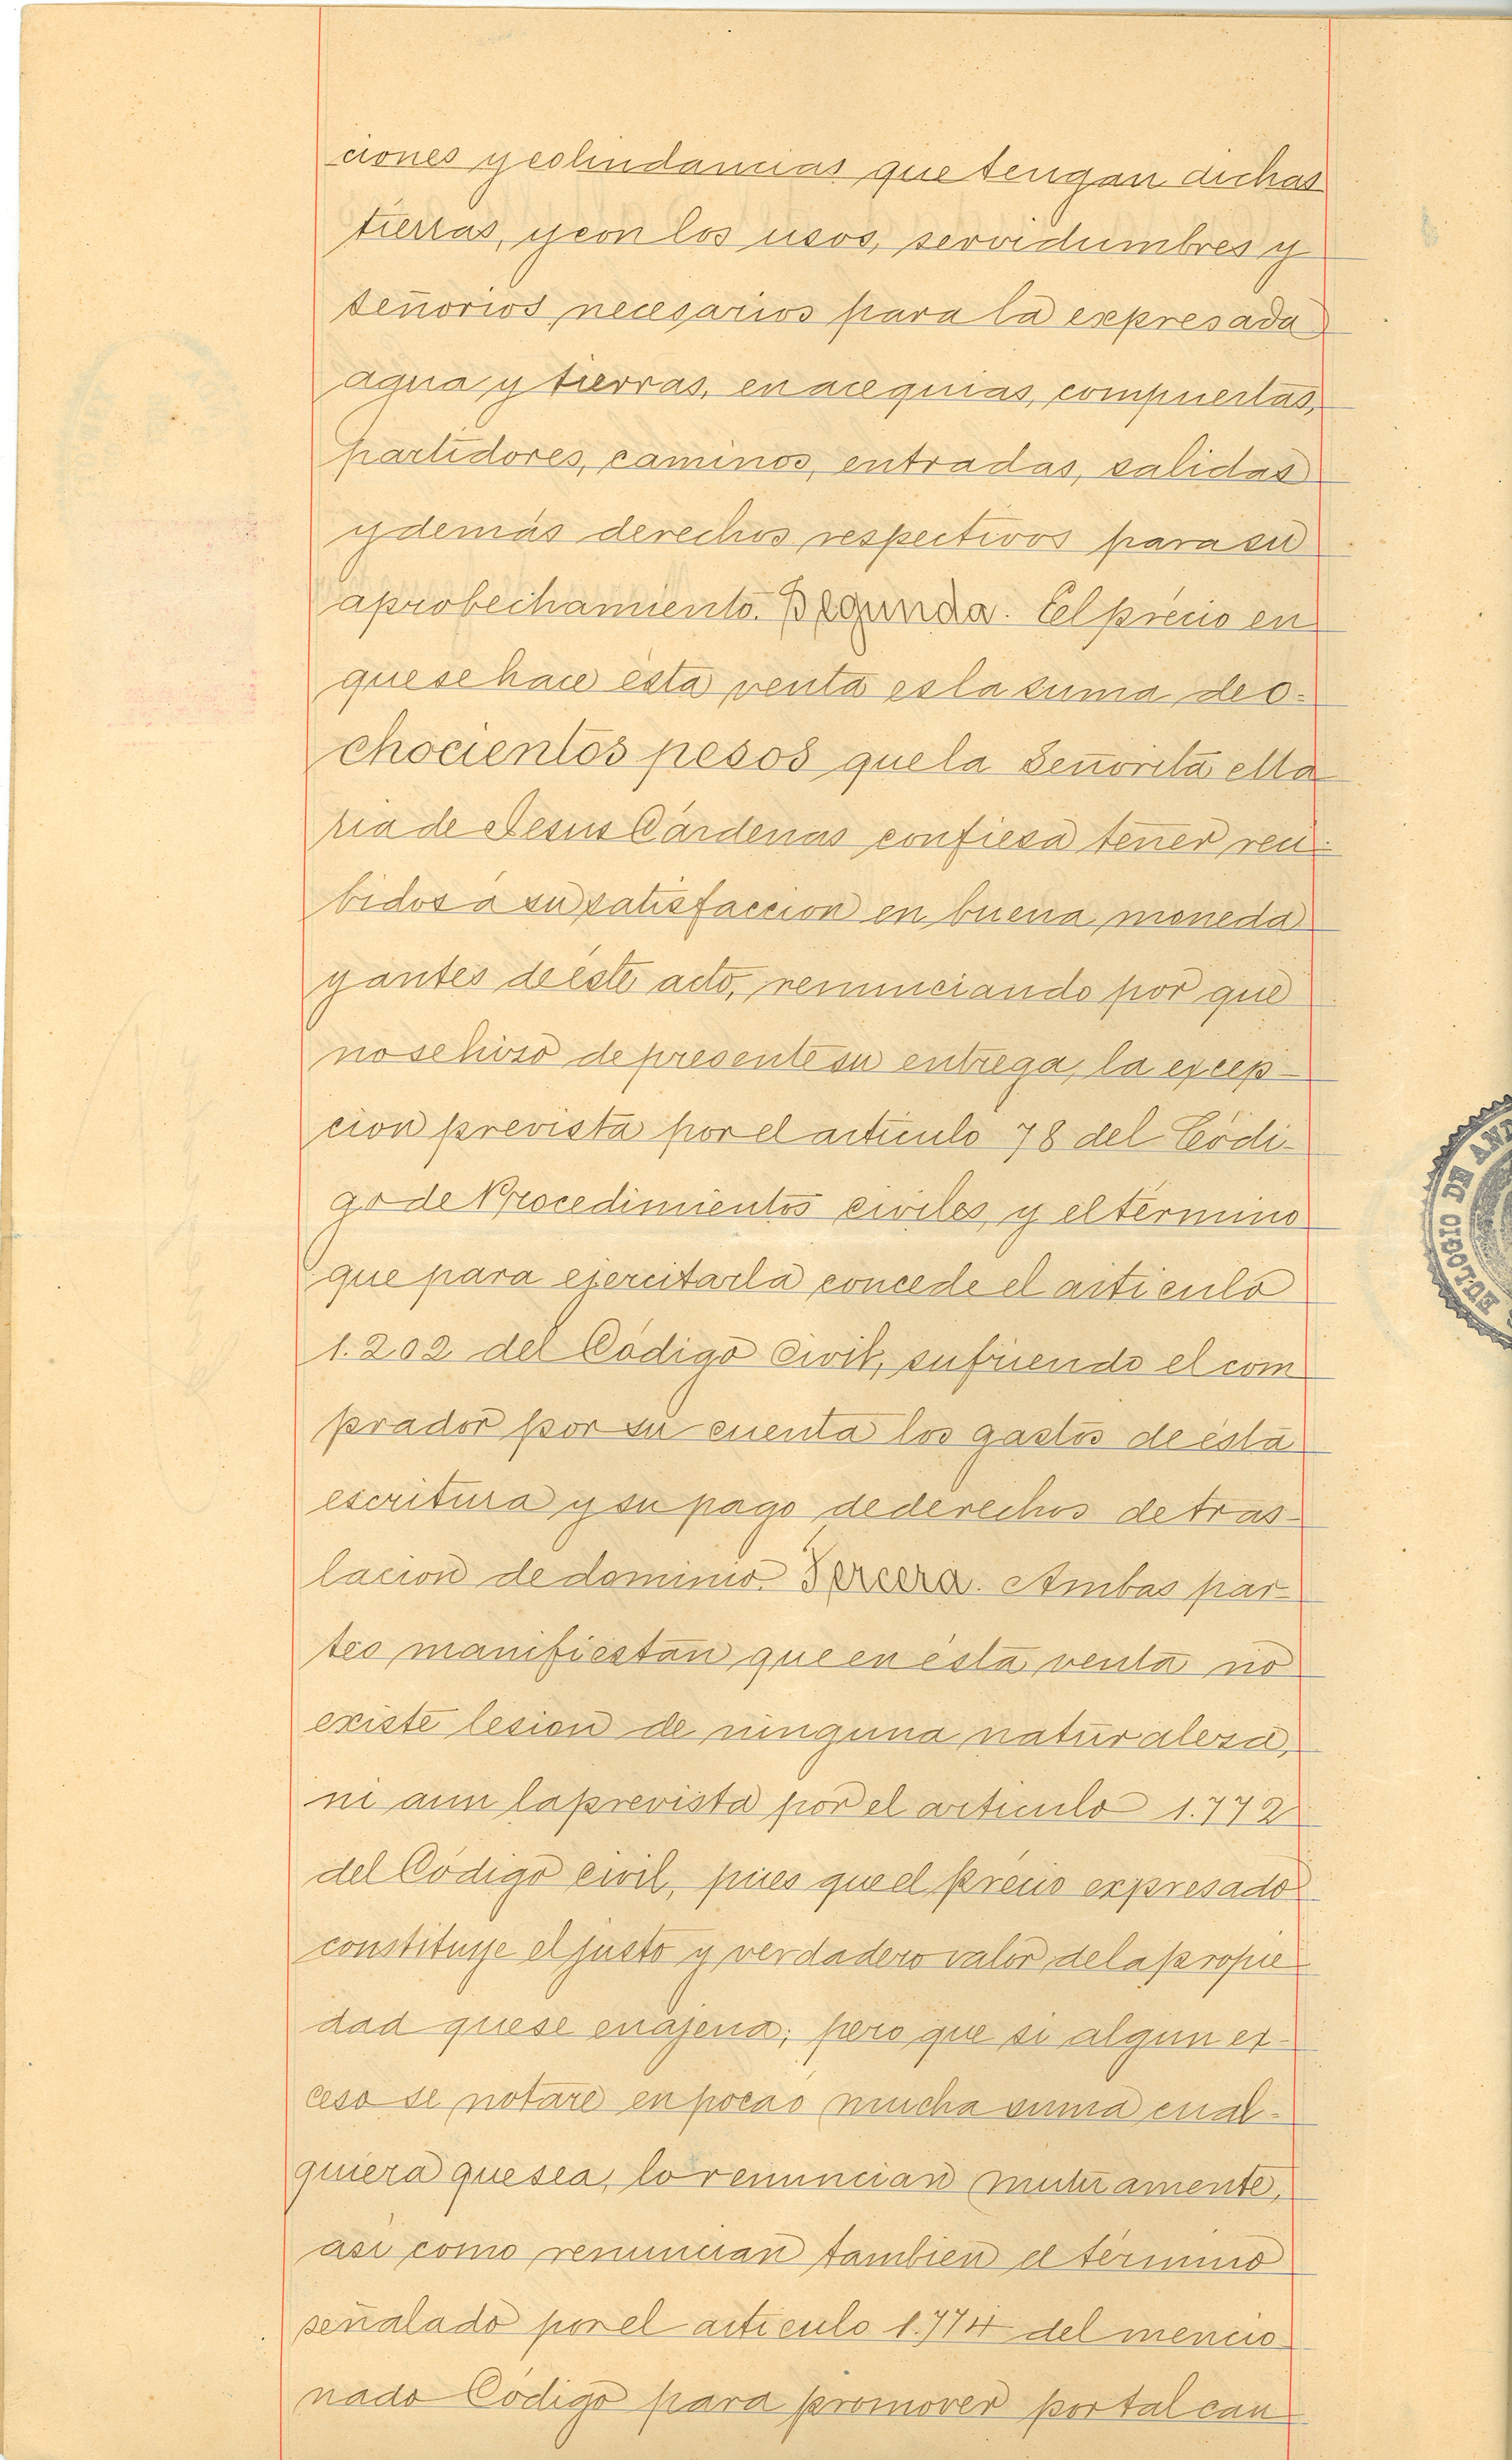 ciones y colindancias que tengan dichas
tierras, y con los usos, servidumbres y
señorios necesarios para la expresada
agua y tierras, en acequias, compuertas,
partidores, caminos, entradas, salidas
y demás derechos respectivos para su
aprobechamiento. Segunda. El précio en
que se hace ésta venta es la suma de o-
chocientos pesos que la Señorita Ma
ria de Jesus Cárdenas confiesa tener reci-
bidos á su satisfaccion en buena moneda
y antes de éste acto, renunciando por que
no se hiso de presente su entrega, la excep-
cion prevista por el artículo 78 del Códi-
go de Procedimientos civiles, y el término
que para ejercitarla concede el artículo
1.202 del Código Civil, sufriendo el com
prador por su cuenta los gastos de ésta
escritura y su pago de derechos de tras-
lacion de dominio. Tercera. Ambas par-
tes manifiestan que en ésta venta no
existe lesion de ninguna naturalesa,
ni aun la prevista por el artículo 1.772
del Código civil, pues que el précio expresado
constituye el justo y verdadero valor de la propie
dad que se enajena; pero que si algun ex-
ceso se notare en poca o mucha suma cual-
quiera que sea, lo renuncian mutuamente,
asi como renuncian tambien el término
señalado por el artículo 1.774 del mencio
nado Código para promover por tal cau
EULOGIO DE AN